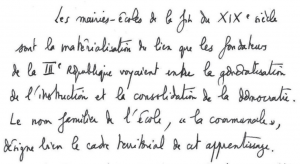 Les mairies-écoles de la fin du XIXe siècle
sont la matérialisation du lien que les fondateurs
de la IIIe République voyaient entre la généralisation
de l'instruction et la consolidation de la démocratie.
Le nom familier de l'école, « la communale »,
désigne bien le cadre territorial de cet apprentissage.